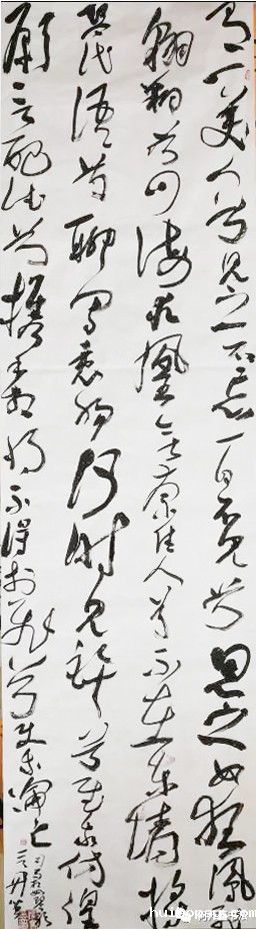 有一美人兮見之不忘一日不見兮思之如狂鳳飛
翱翔兮四海求凰無奈佳人兮不在東墻將
琴代語兮聊寫衷腸何時見許兮慰我彷徨
願言配德兮攜手相將不得於飛兮使我淪亡